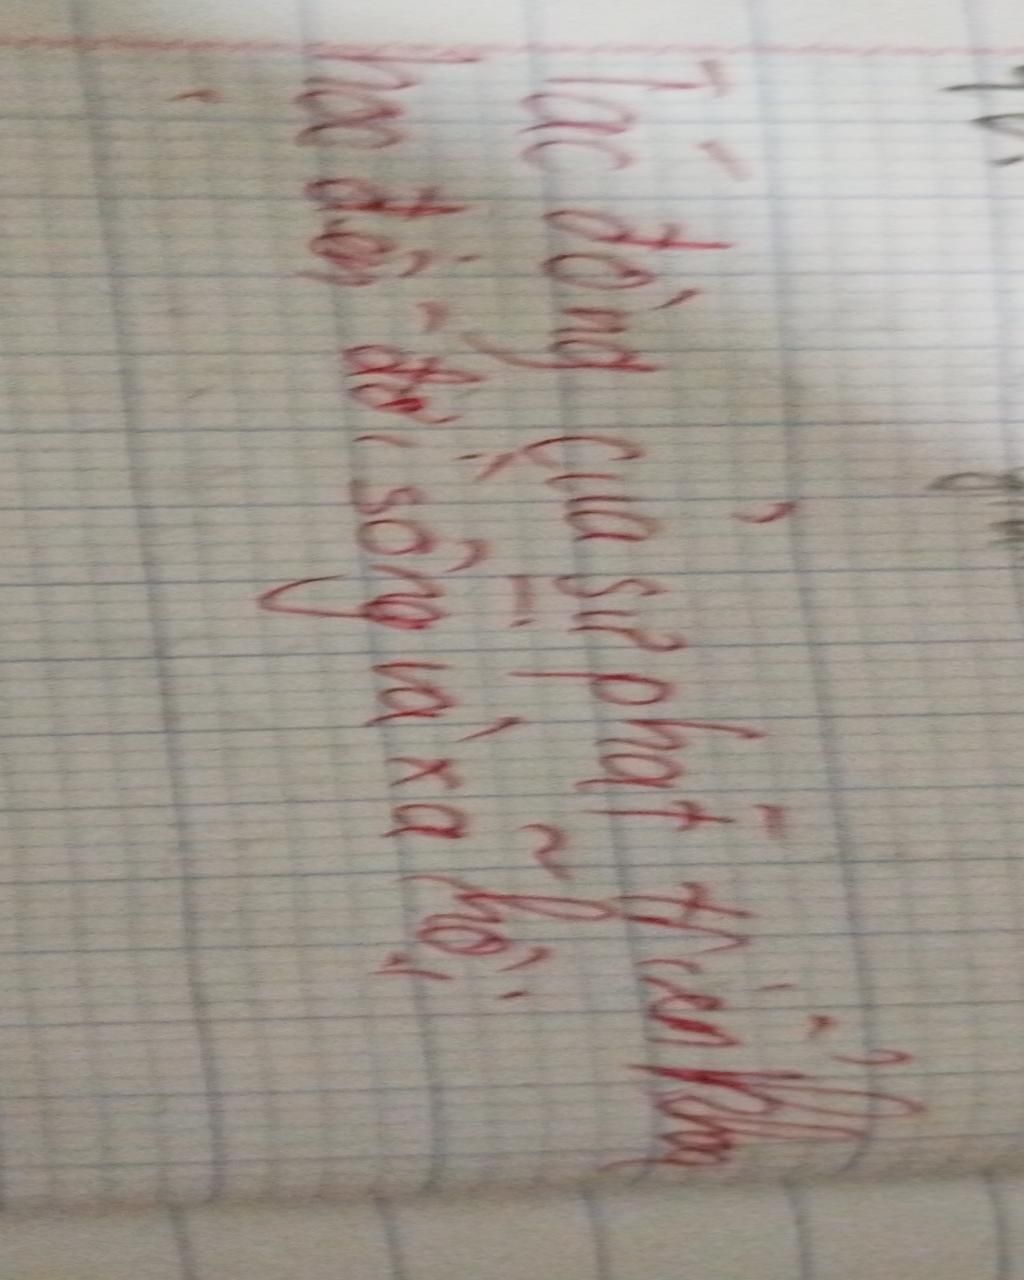 Tác động của sự phát triển khoa
học đối với đời sống và xã hội